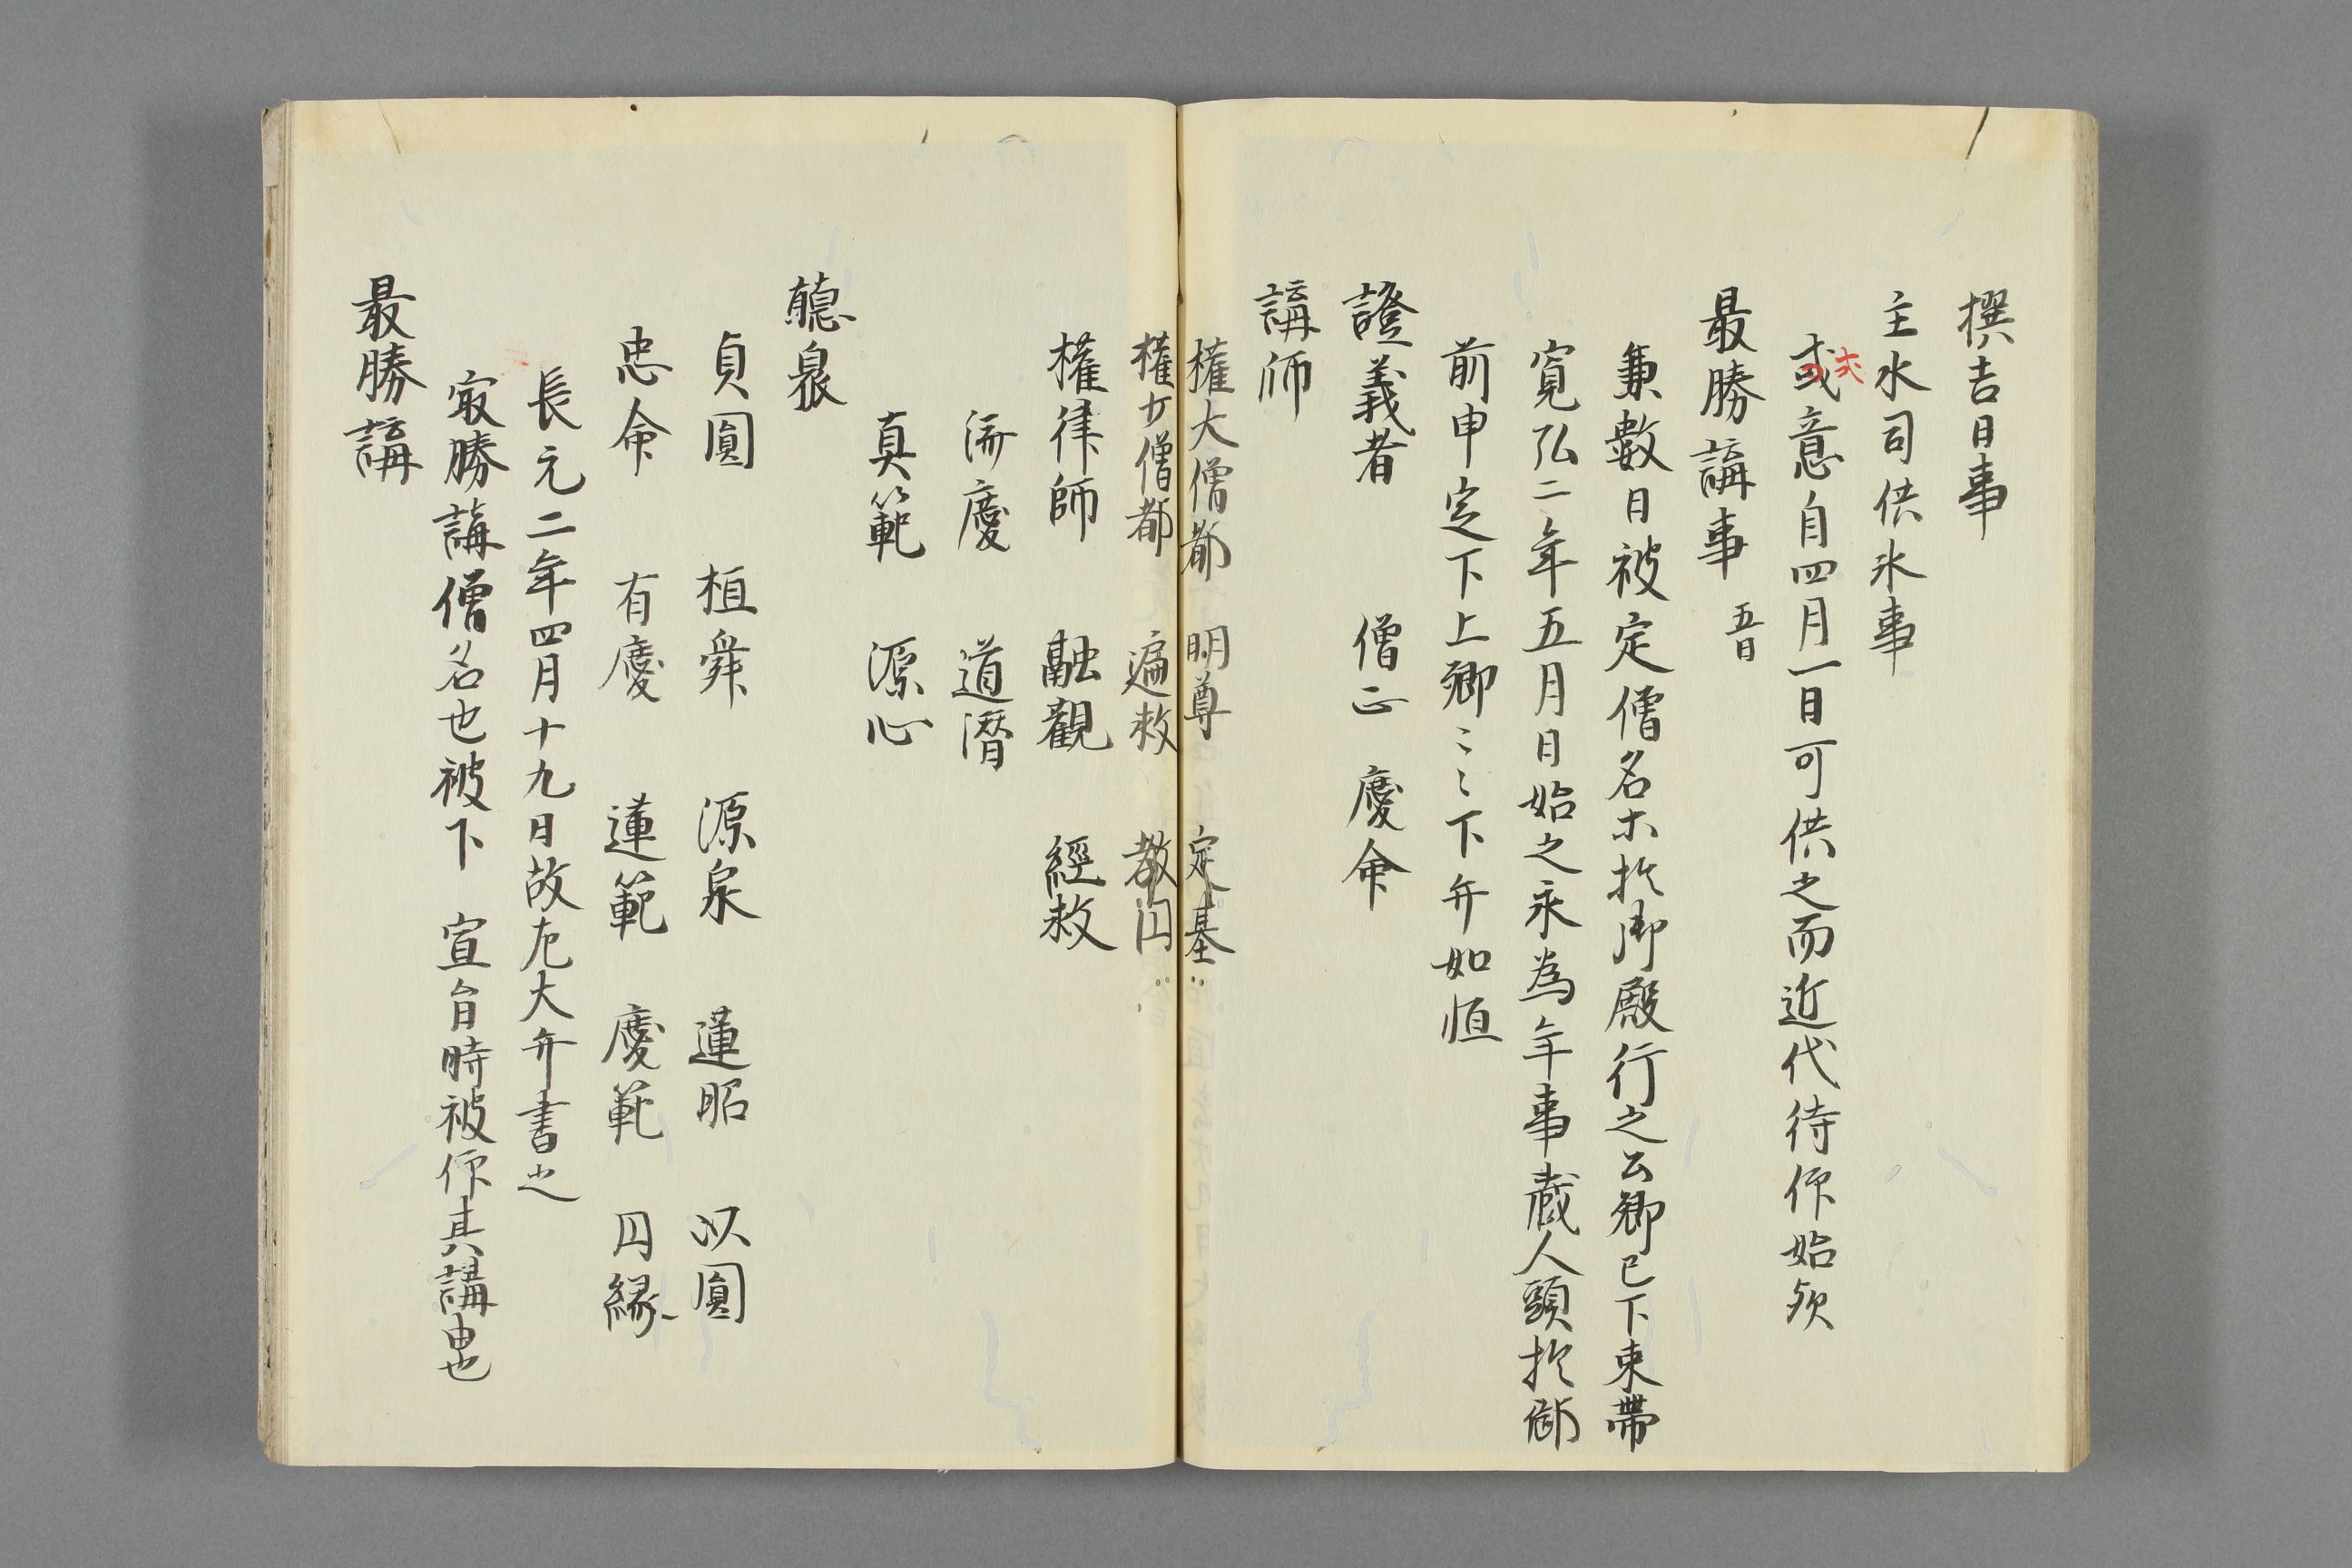 撰吉日事
主水司供氷事
或意自四月一日可供之而近代待仰始欤
式
最勝講事 五日
兼数日被定僧名木於御殿行之公卿已下束帯
寛弘二年五月日始之永為年事蔵人頭於御
前申定下上卿〻〻下弁如恒
證義者 僧正 慶命
講師
権大僧都 明尊 定基
権少僧都 遍救 教円
権律師 融観 経救
済慶 道潛
真範 源心
聴衆
貞圓 桓舜 源泉 蓮昭 以圓
忠命 有慶 蓮範 慶範 円縁
長元二年四月十九日故左大弁書之
㝡勝講僧名也被下 宣旨時被仰其講由也
最勝講